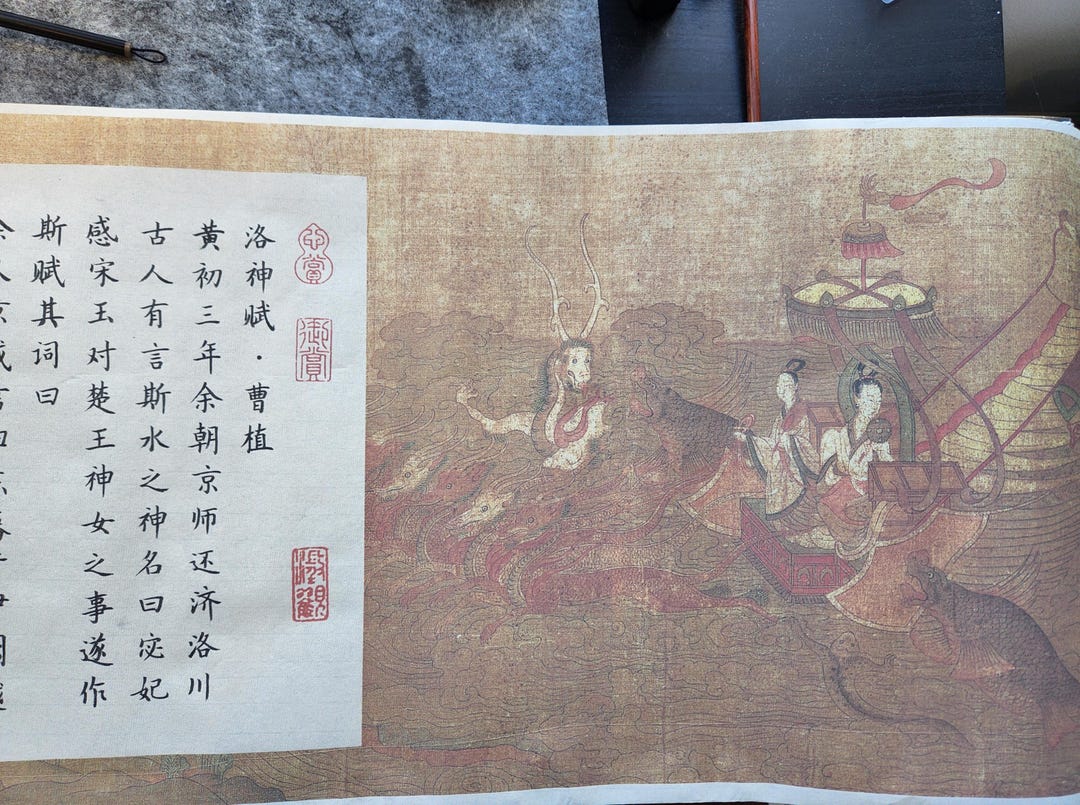 御賞
澂觀
洛神赋·曹植
黄初三年余朝京师还济洛川
古人有言斯水之神名曰宓妃
感宋玉对楚王神女之事遂作
斯赋其词曰